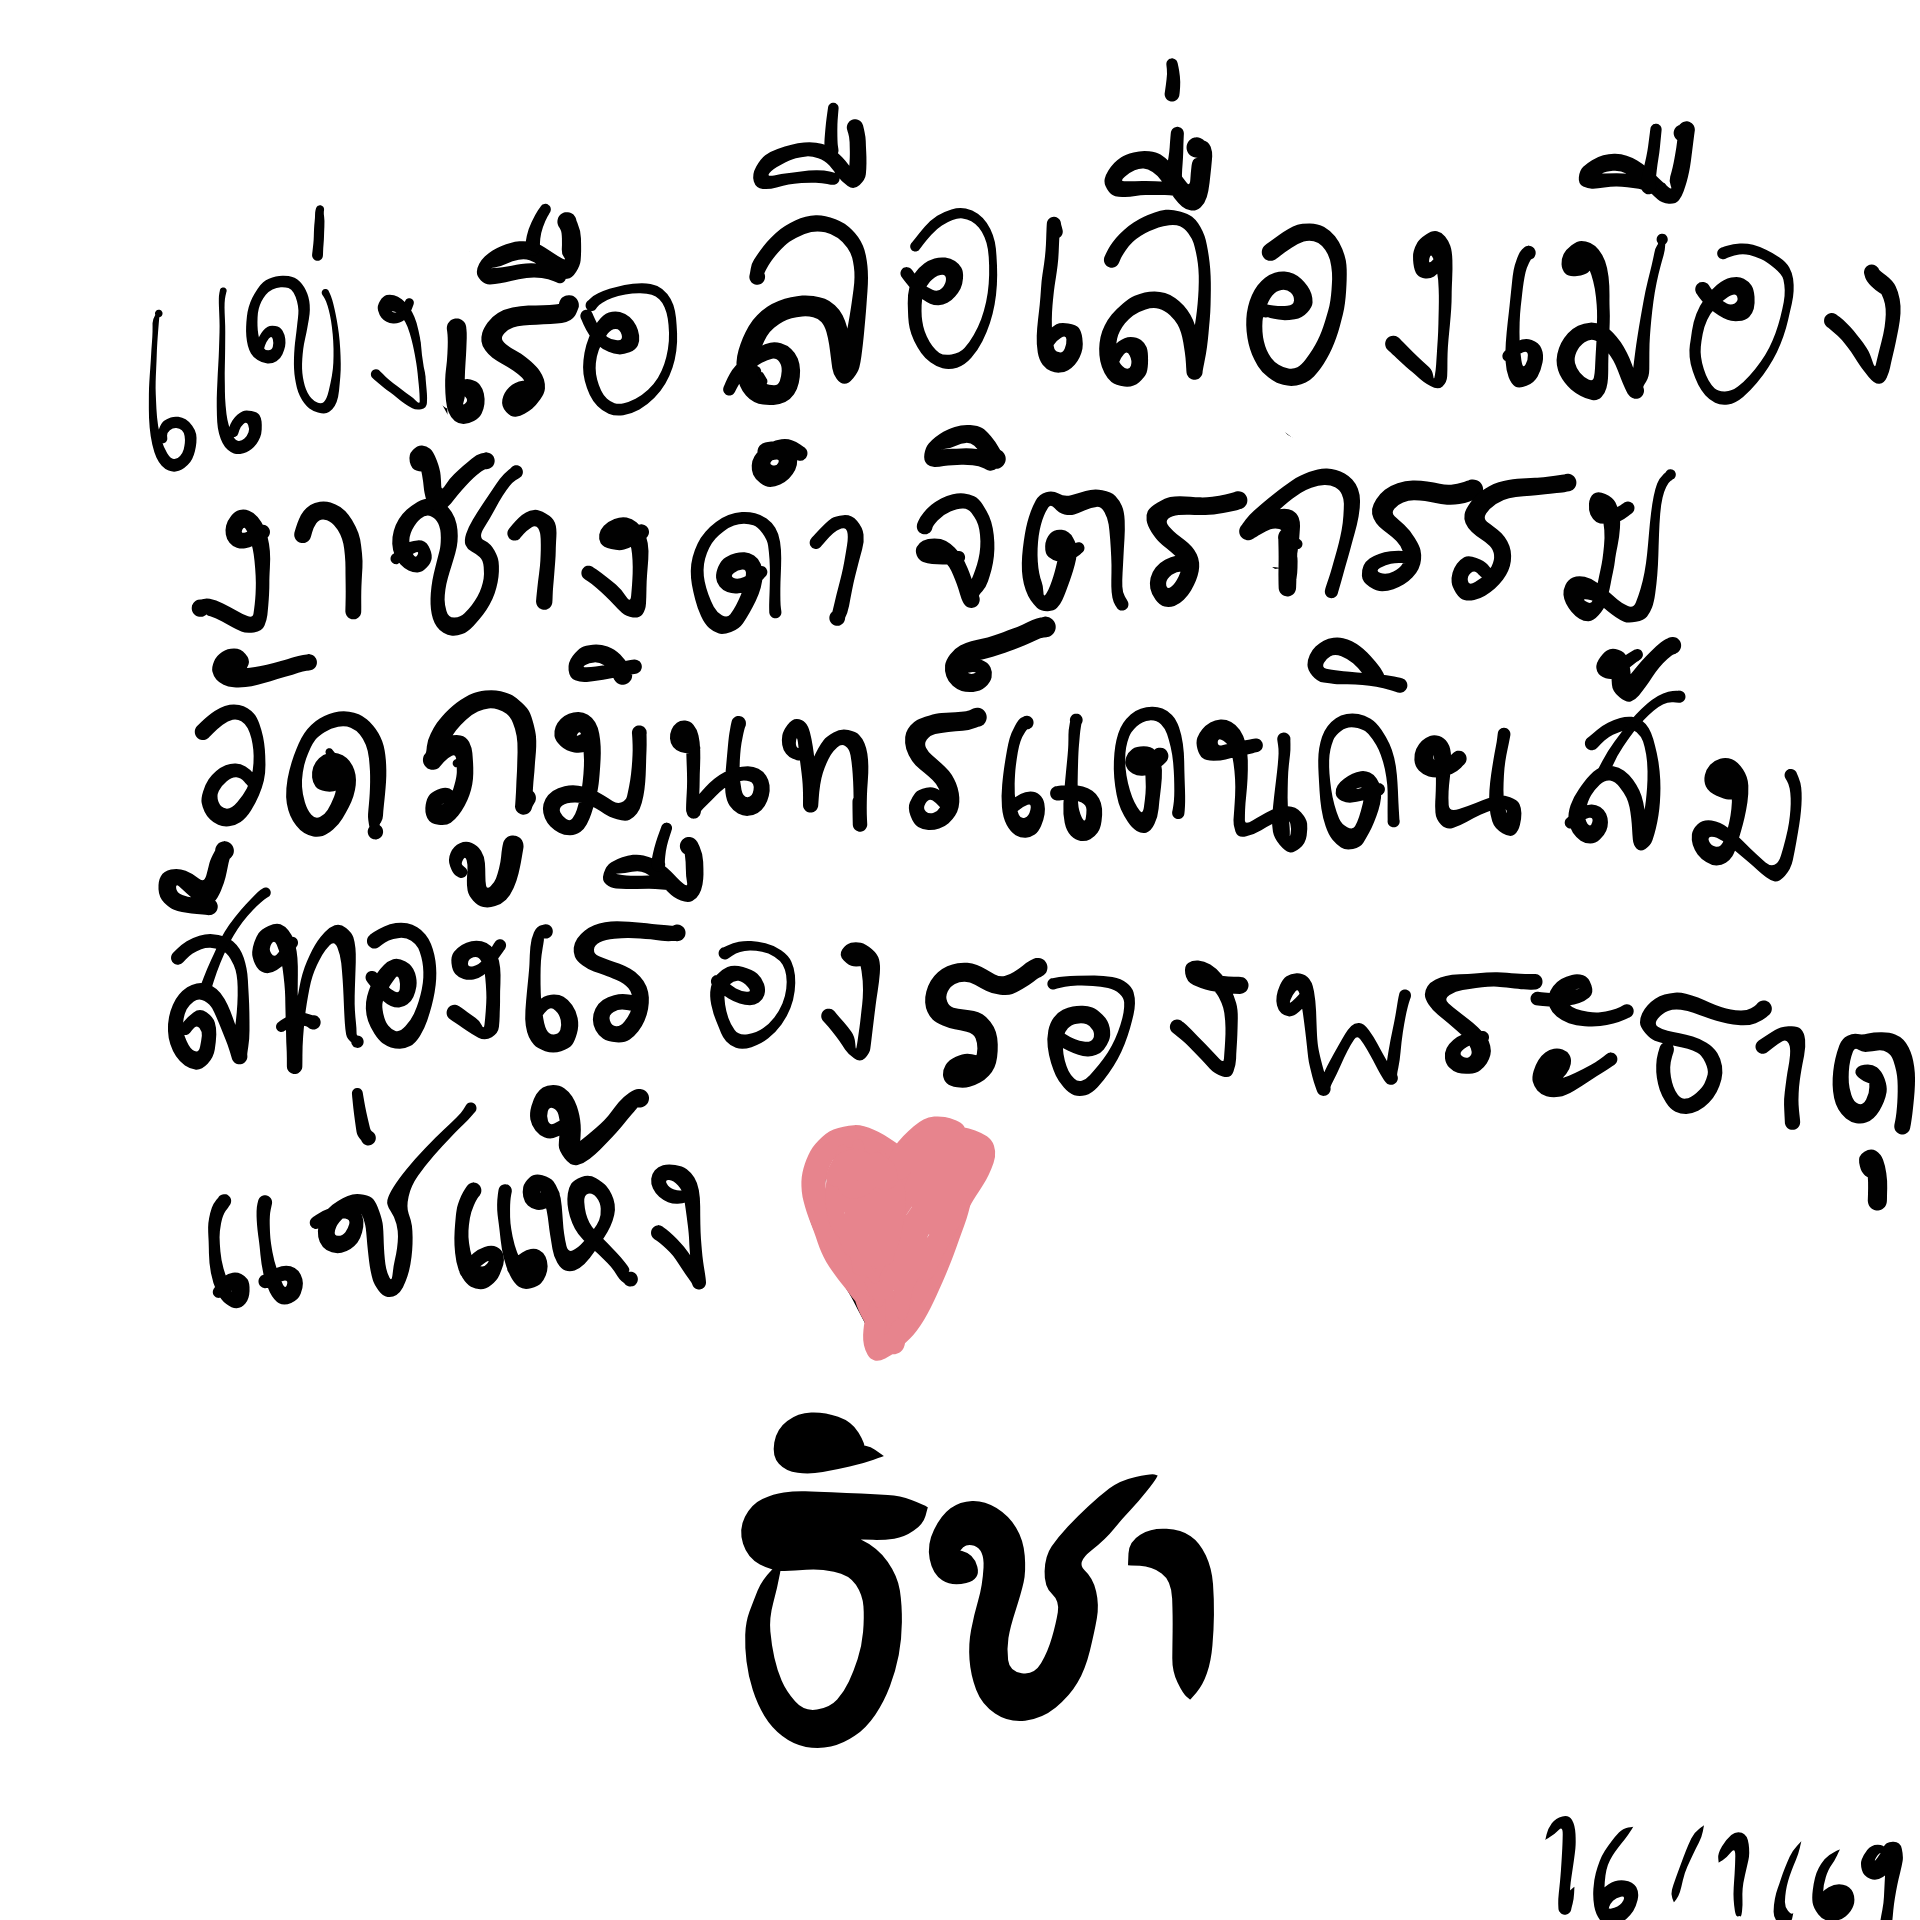 แข่งเรือลือเลื่องเมือง
งาช้างดำ จิตรกรรม
วัดภูมินทร์ แดนดินส้ม
สีทองเรืองรอง พระธาตุ
แช่แห้ง
ธิชา
16/1/69